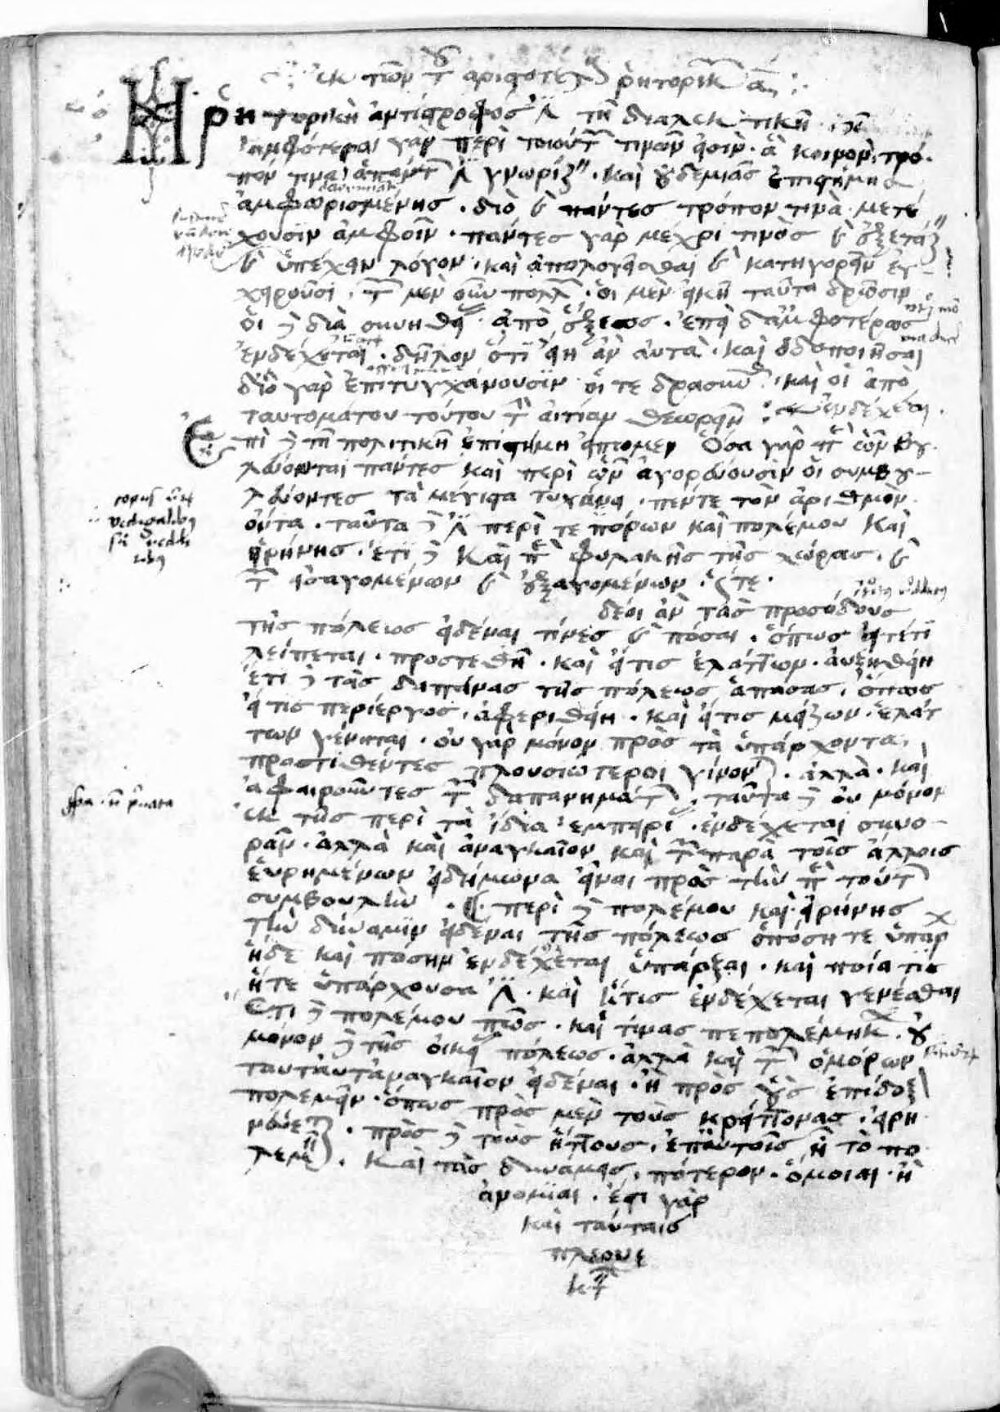 ἐκ τῶν τοῦ ἀριστοτέλους ῥητορικῶν
Ἡ ῥητορικὴ ἀντίστροφος ἐστι τῇ διαλεκτικῇ
ἀμφότεραι γὰρ περὶ τοιούτων τινῶν εἰσὶν · ἃ κοινὸν τρό
πον τινα ἁπάντων ἐστὶ γνωρίζειν · καὶ οὐδεμιᾶς ἐπιστήμης
ἀμφωρισμένης · διὸ καὶ πάντες τρόπον τινὰ μετέ
χουσιν ἀμφοῖν · πάντες γὰρ μεχρι τινὸς καὶ ἐξετάζειν
καὶ ὑπέχειν λόγον · καὶ ἀπολογεῖσθαι καὶ κατηγορεῖν ἐγ
χειροῦσι · τῶν μὲν οὖν πολλῶν · οἱ μὲν εἰκῆ ταῦτα δρῶσιν
οἱ δὲ διὰ συνήθειαν ἀπὸ ἕξεως · ἐπεὶ δ' ἀμφοτέρως
ἐνδέχεται · δῆλον ὅτι εἴη ἂν αὐτὰ · καὶ ὁδοποιῆσαι
διὸ γὰρ ἐπιτυγχάνουσιν οἵ τε δρασκων · καὶ οἱ ἀπὸ
ταυτομάτου τούτου τὴν αἰτίαν θεωρεῖν ἐνδέχεται ·
Ἐπὶ δὲ τῇ πολιτικῇ ἐπιστήμῃ εἴπωμεν Ὅσα γὰρ περὶ ὧν βου
λεύονται παντες καὶ περὶ ὧν ἀγορεύουσιν οἱ συμβου
λεύοντες τὰ μέγιστα τυγχάνει · πέντε τὸν ἀριθμὸν
ὄντα · ταῦτα δέ ἐστι περί τε πόρων καὶ πολέμου καὶ
εἰρήνης · ἔτι δὲ καὶ περὶ φυλακῆς τῆς χώρας · καὶ
τῶν εἰσαγομένων καὶ ἐξαγομένων · ὥστε ·
δέοι ἂν τὰς προσόδους
τῆς πόλεως εἰδέναι τίνες καὶ πόσαι · ὅπως εἴτέ τι
λείπεται · προστεθῇ · καὶ εἴτις ἐλάττων · αὐξηθείη
ἔτι δὲ τὰς δαπάνας τῆς πόλεως ἁπάσας · ὅπως
εἴ τις περίεργος · ἀφαιρεθείη · καὶ εἴ τις μείζων · ἐλάτ
των γένηται · οὐ γὰρ μόνον πρὸς τὰ ὑπάρχοντα
προστιθέντες πλουσιώτεροι γίνονται · ἀλλὰ · καὶ
ἀφαιροῦντες τῶν δαπανημάτων · ταῦτα δὲ οὐ μόνον
ἐκ τῆς περὶ τὰ ἴδια ἐμπειρίας · ἐνδέχεται συνο
ρᾶν · ἀλλὰ καὶ ἀναγκαῖον καὶ τῶν παρὰ τοῖς ἄλλοις
εὑρημένων εἰδήμονα εἶναι πρὸς τὴν περὶ τούτων
συμβουλὴν · περὶ δὲ πολέμου καὶ εἰρήνης
τὴν δύναμιν εἰδέναι τῆς πόλεως ὁπόση τε ὑπάρχει
ἤδε καὶ πόσην ἐνδέχεται ὑπάρξαι · καὶ ποία τις
ἥτε ὑπάρχουσα ἐστι · καὶ ἥτις ἐνδέχεται γενέσθαι
Ἔτι δὲ πολέμου πῶς · καὶ τίνας πεπολέμηκεν · οὐ
μόνον δὲ τῆς οἰκείας πόλεως · ἀλλὰ καὶ τῶν ὁμόρων
ταῦτ' ἀναγκαῖον εἰδέναι · ἢ πρὸς οὓς ἐπίδοξον
πολεμεῖν · ὅπως πρὸς μὲν τοὺς κρείττονας · εἰρη
νεύεται · πρὸς δὲ τοὺς ἥττους · ἐπ' αὐτοῖς ᾖ τὸ πο
λεμεῖν · καὶ τὰς δυνάμεις · πότερον · ὅμοιαι · ἢ
ἀνομοιαι · ἔστι γὰρ
καὶ ταύταις